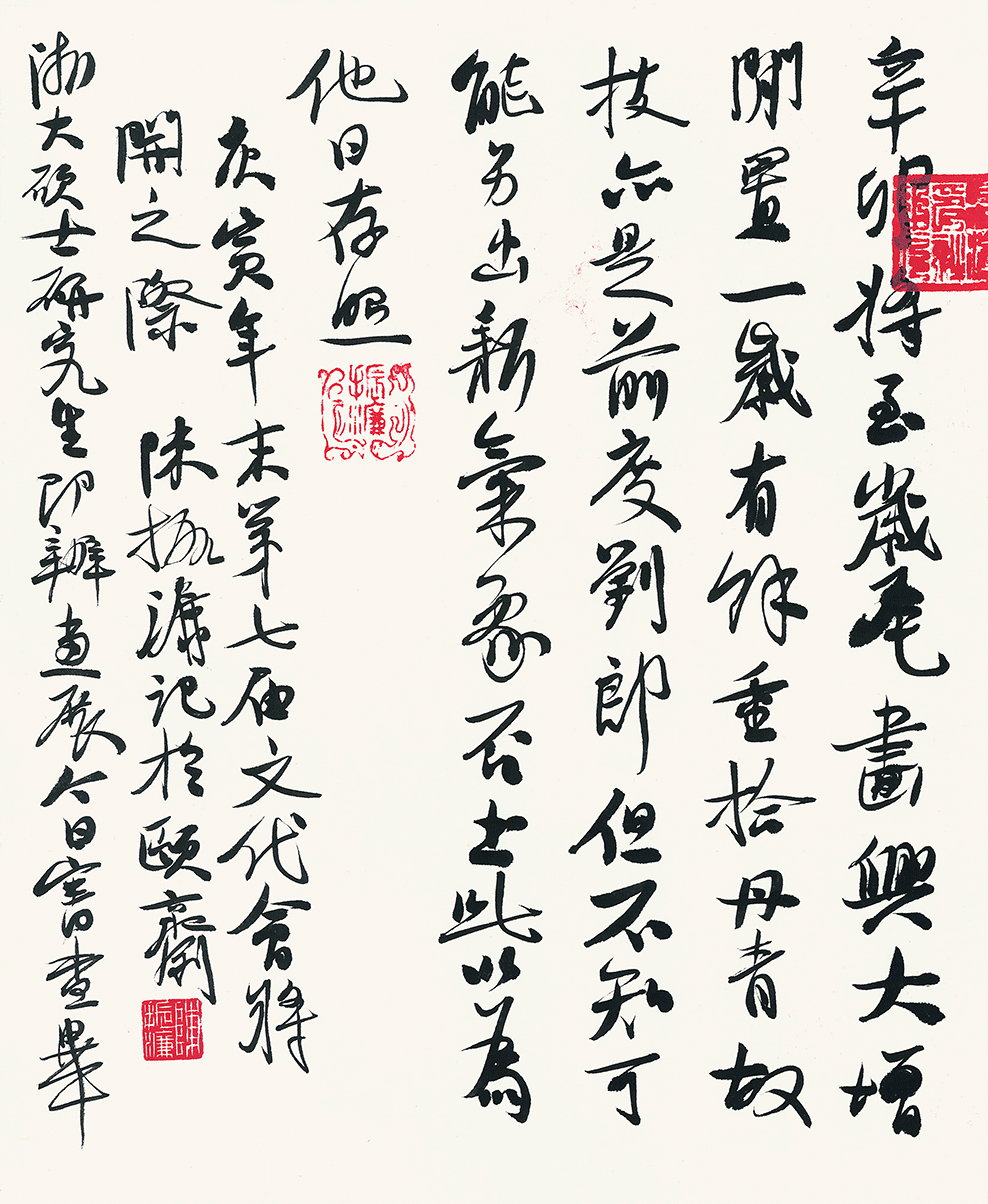 辛卯將至歲尾畫興大增
閒置一歲有餘重拾丹青故
技亦是前度劉郎但不知可
能另出新氣象否此以為
他日存照
庚寅年末第七届文代會將
開之際 陳振濂記於頤齋
浙大硕士研究生即辦畫展今日審查畢
陳振濂